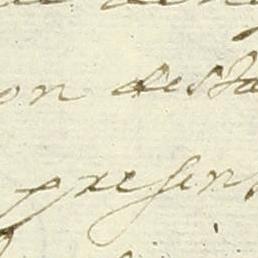 on desta
presen